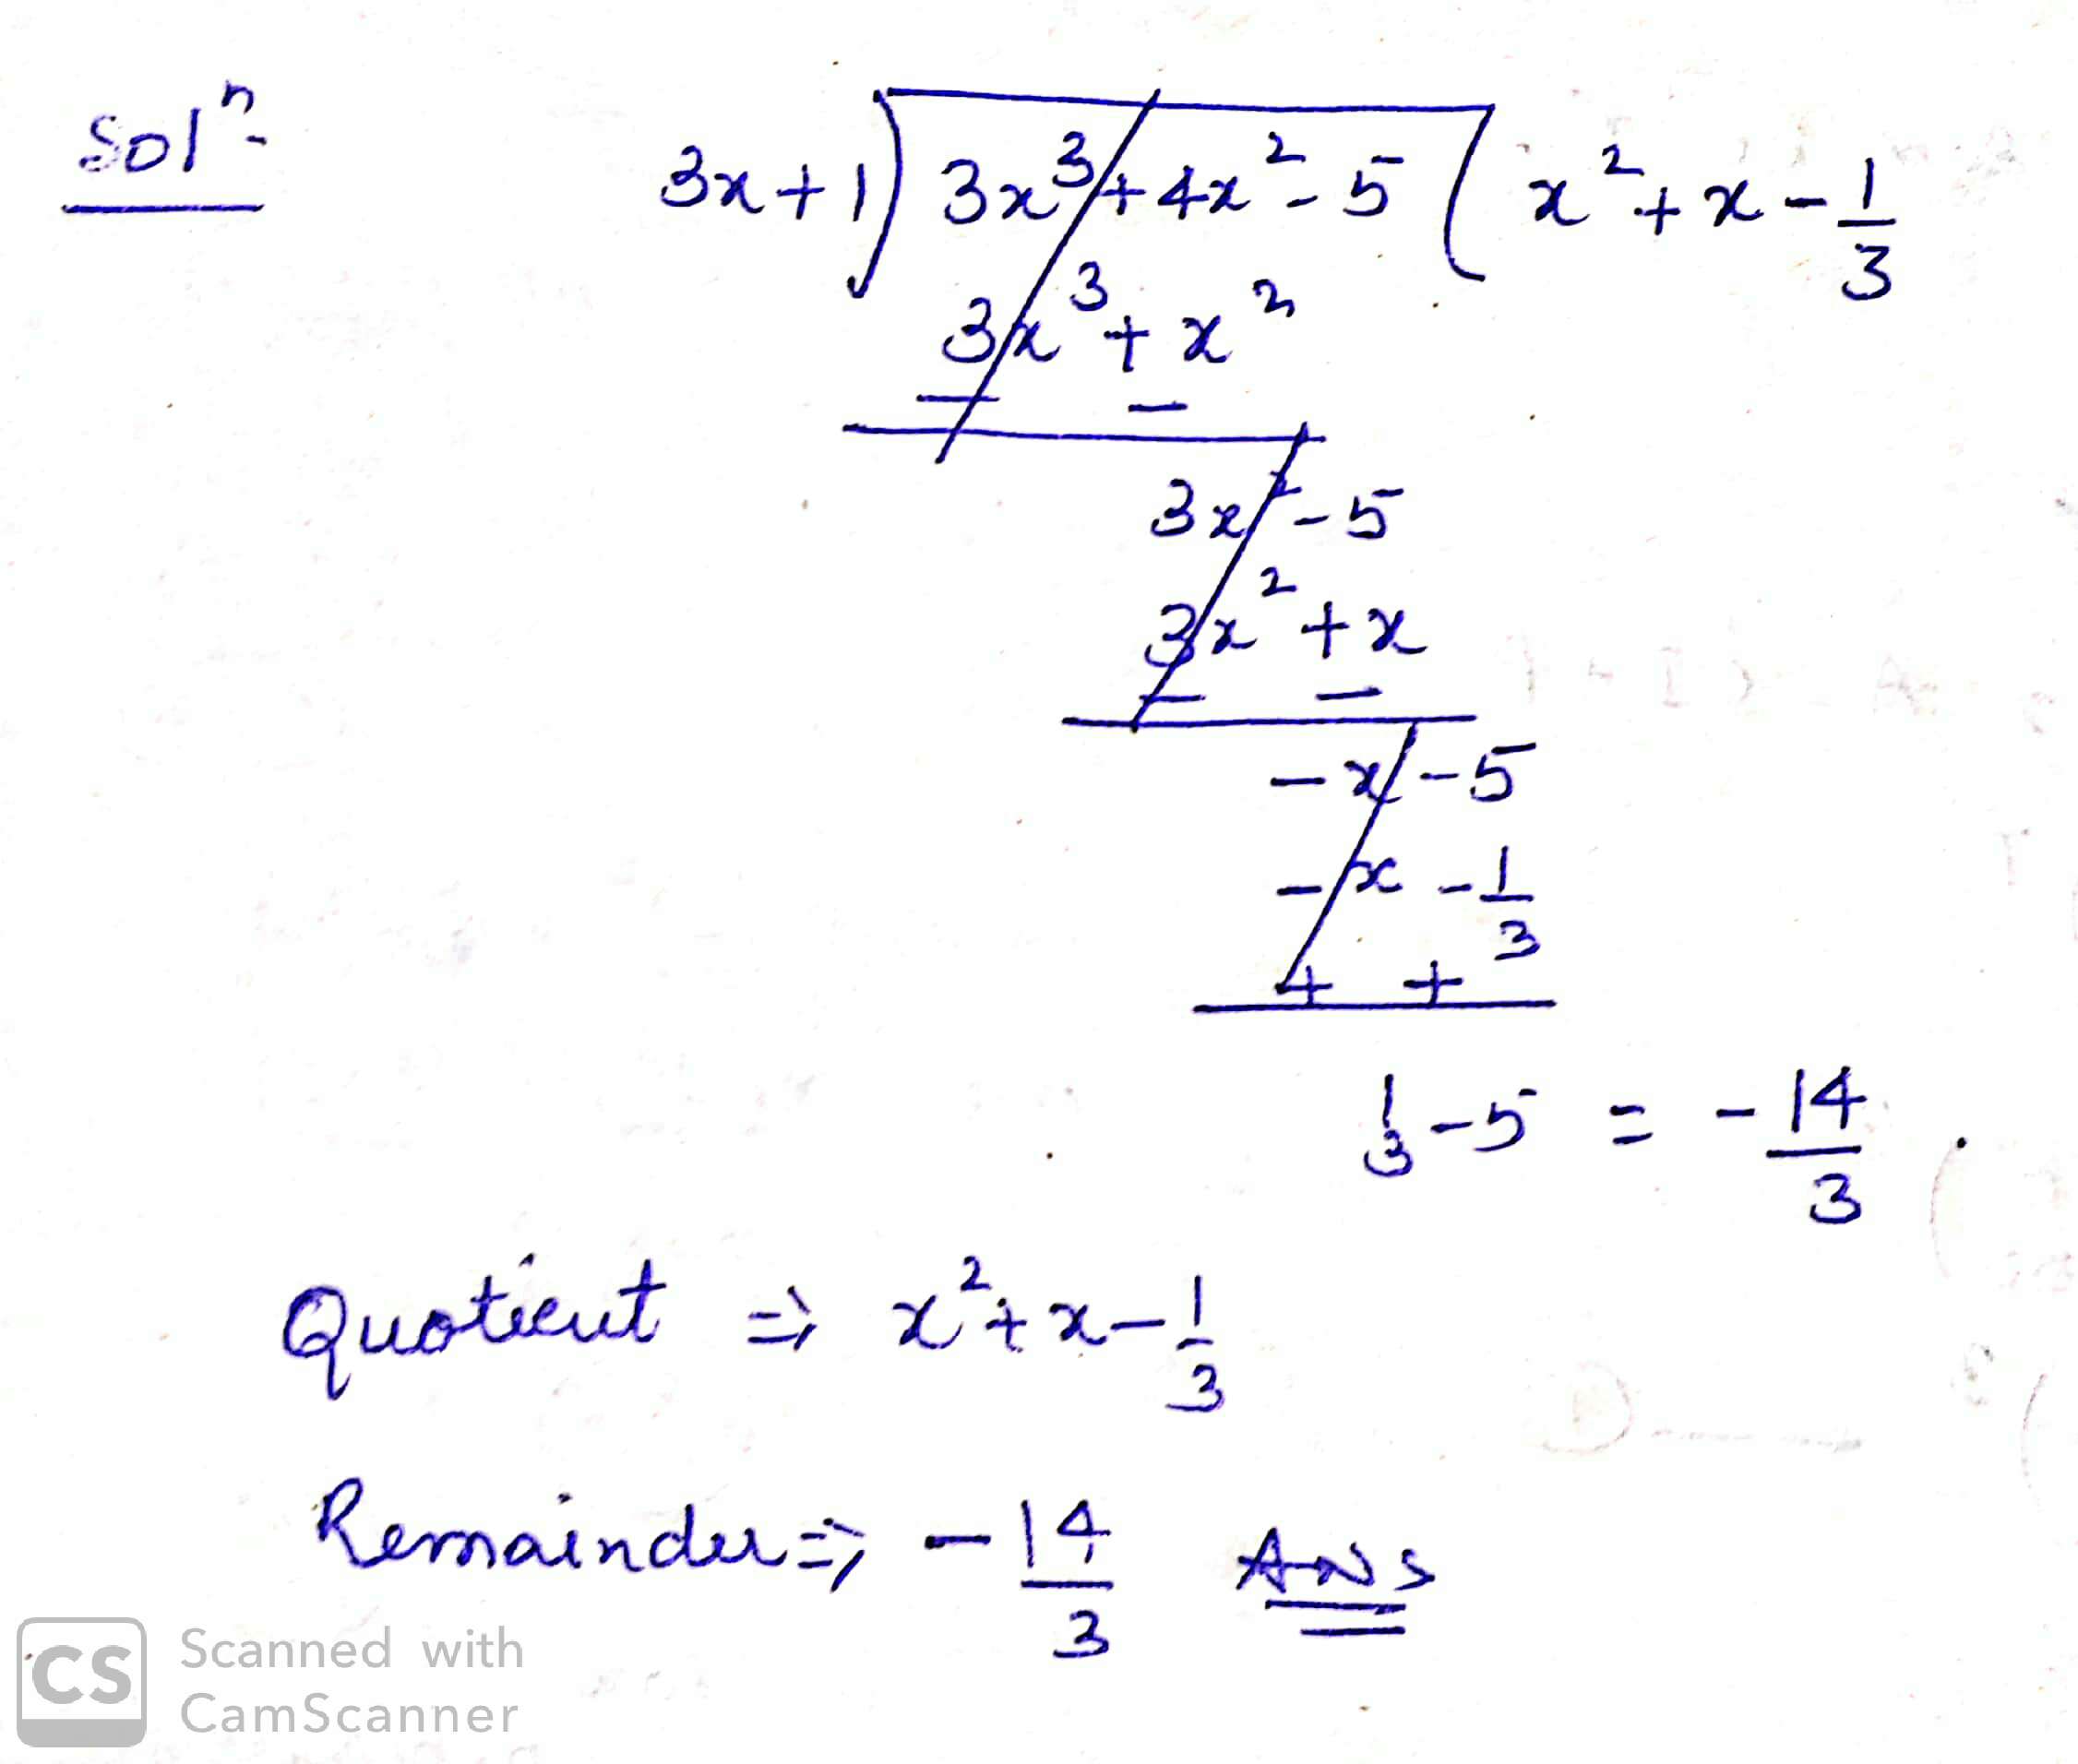 Solⁿ-
3x+1) 3x³+4x²-5 ( x²+x-1/3
3x³+x²
- -
3x²-5
3x²+x
- -
-x-5
-x-1/3
+ +
1/3-5 = -14/3.
Quotient ⇒ x²+x-1/3
Remainder ⇒ -14/3 Ans
CS Scanned with
CamScanner